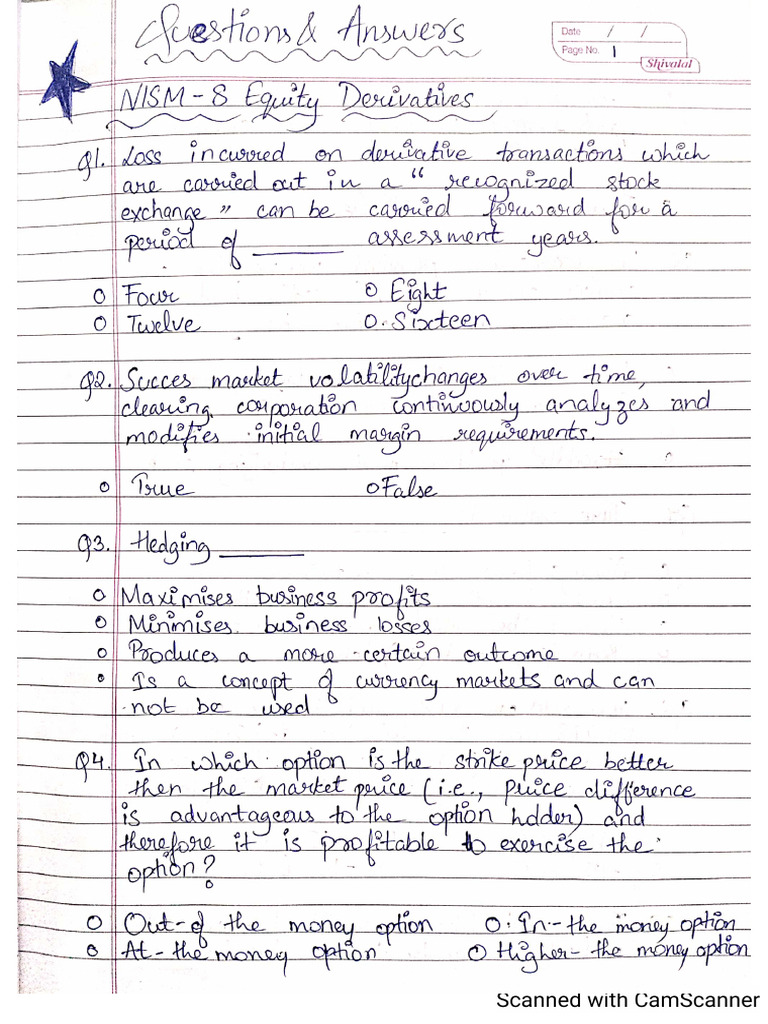 Questions & Answers
Date / /
Page No. 1
Shivalal
NISM-8 Equity Derivatives
Q1. Loss incurred on derivative transactions which
are carried out in a "recognized stock
exchange" can be carried forward for a
period of ______ assessment years.
o Four o Eight
o Twelve o. Sixteen
Q2. Succes market volatilitychanges over time,
clearing corporation continuously analyzes and
modifies initial margin requirements.
o True o False
Q3. Hedging ______
o Maximises business profits
o Minimises business losses
o Produces a more certain outcome
o Is a concept of currency markets and can
not be used
Q4. In which option is the strike price better
then the market price (i.e., price difference
is advantageous to the option holder) and
therefore it is profitable to exercise the
option?
o Out-of the money option o. In-the money option
o At-the money option o Higher-the money option
Scanned with CamScanner